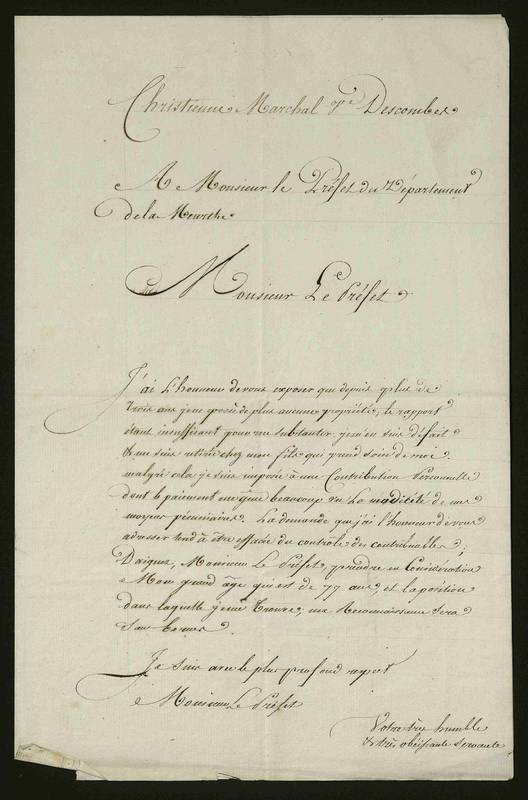 Christienne Marchal Vve Descombes
A Monsieur le Préfet du Département
de la Meurthe
Monsieur Le Préfet
J'ai l'honneur de vous exposer que depuis plus de
trois ans je ne possède plus aucune propriété, le rapport
étant insuffisant pour me substanter je m'en suis défait
& me suis retirée chez mon fils qui prend soin de moi.
malgré cela je suis imposée à une Contribution Personnelle
dont le paiement me gêne beaucoup vu la modicité de mes
moyens pécuniaires. La demande que j'ai l'honneur de vous
adresser tend à être effacée du contrôle des contribuables;
Daignez, Monsieur Le Préfet, prendre en Considération
Mon grand âge qui est de 77 ans, et la position
dans laquelle je me trouve; ma Reconnaissance sera
Sans bornes.
Je suis avec le plus profond respect
Monsieur Le Préfet
Votre très humble
& très obéissante Servante